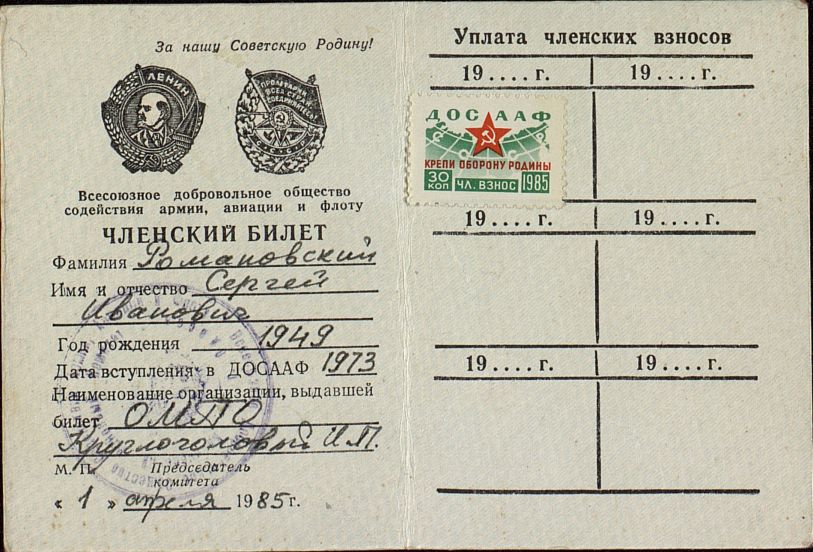 За нашу Советскую Родину!
ЛЕНИН
Всесоюзное добровольное общество
содействия армии, авиации и флоту
ЧЛЕНСКИЙ БИЛЕТ
Фамилия Романовский
Имя и отчество Сергей
Иванович
Год рождения 1949
Дата вступления в ДОСААФ 1973
Наименование организации, выдавшей
билет ОМПО
И.П.
М. П. Председатель
комитета
« 1 » апреля 1985 г.
Уплата членских взносов
19 .... г. 19 .... г.
ДОСААФ
КРЕПИ ОБОРОНУ РОДИНЫ
30 КОП ЧЛ. ВЗНОС 1985
19 .... г. 19 .... г.
19 .... г. 19 .... г.